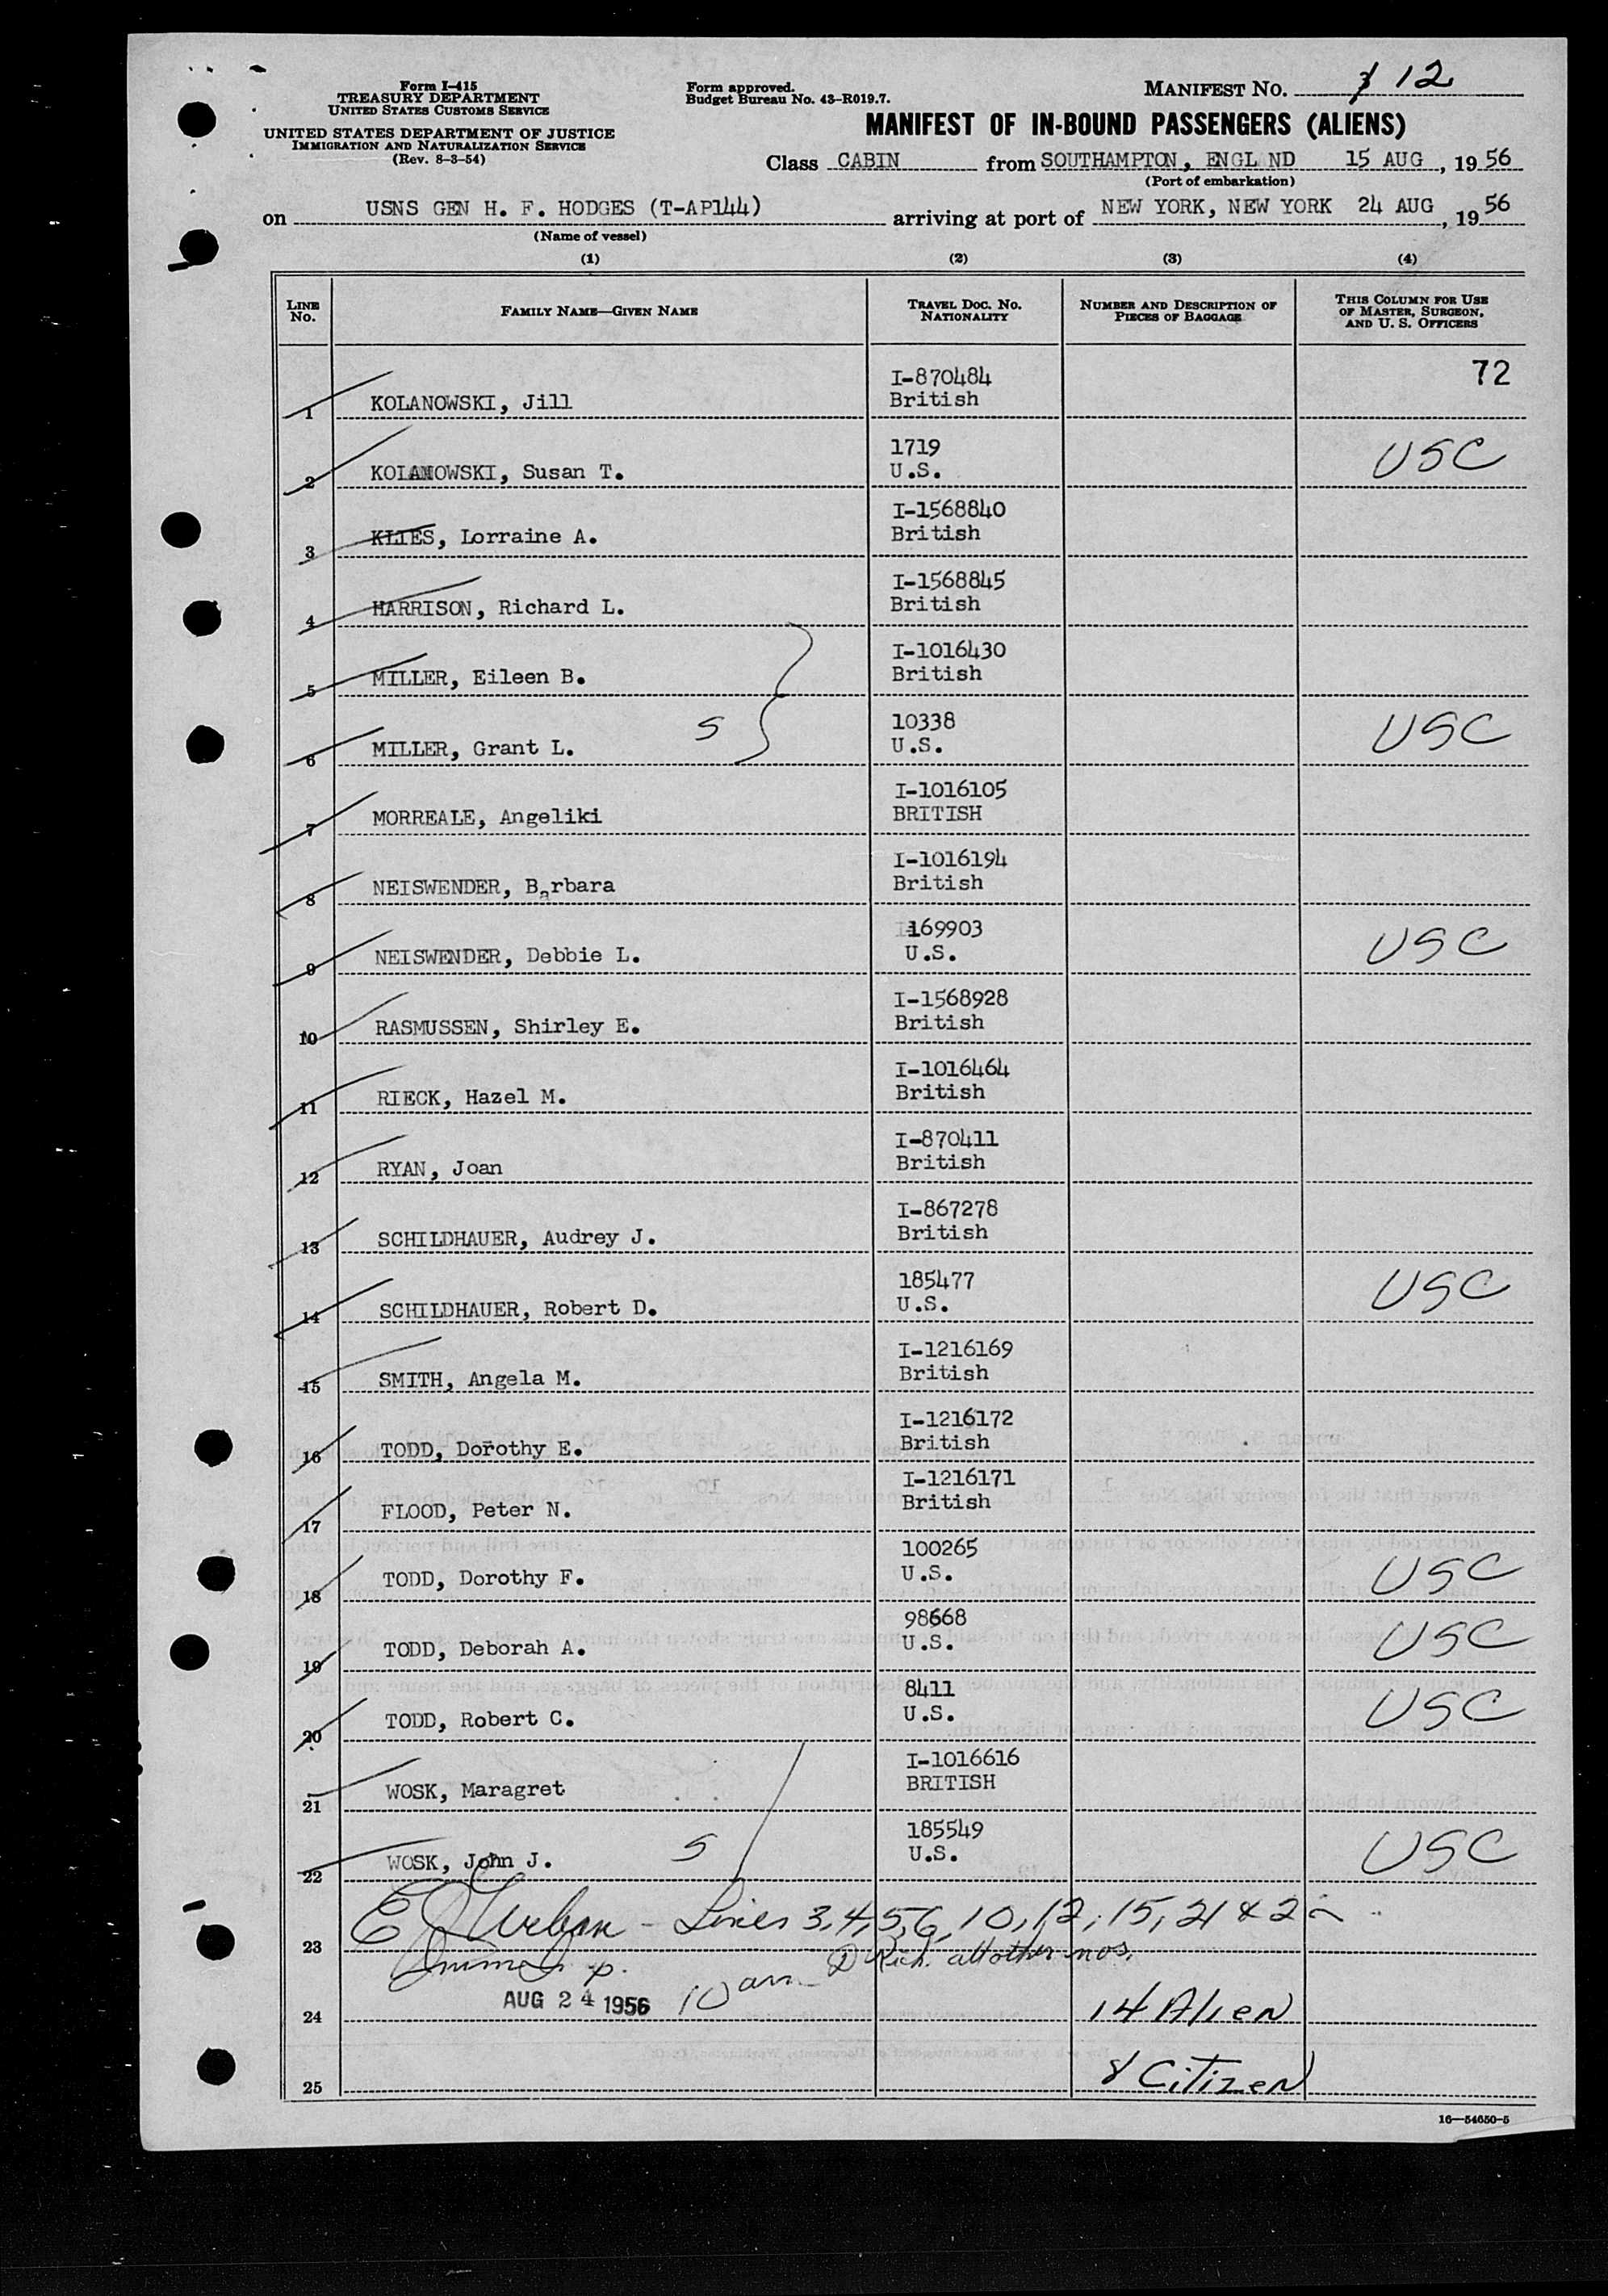 Form I-415
TREASURY DEPARTMENT
UNITED STATES CUSTOMS SERVICE
UNITED STATES DEPARTMENT OF JUSTICE
IMMIGRATION AND NATURALIZATION SERVICE
(Rev. 8-3-54)
Form approved.
Budget Bureau No. 43-R019.7.
MANIFEST NO. 12
MANIFEST OF IN-BOUND PASSENGERS (ALIENS)
Class CABIN from SOUTHAMPTON, ENGL ND 15 AUG, 1956
(Port of embarkation)
on USNS GEN H. F. HODGES (T-AP144) arriving at port of NEW YORK, NEW YORK 24 AUG, 1956
(Name of vessel)
(1) (2) (3) (4)
LINE NO. FAMILY NAME—GIVEN NAME TRAVEL DOC. NO. NATIONALITY NUMBER AND DESCRIPTION OF PIECES OF BAGGAGE THIS COLUMN FOR USE OF MASTER, SURGEON, AND U. S. OFFICERS
72
1 KOLANOWSKI, Jill I-870484 British
2 KOLANOWSKI, Susan T. 1719 U.S. USC
3 KLIES, Lorraine A. I-1568840 British
4 HARRISON, Richard L. I-1568845 British
5 MILLER, Eileen B. I-1016430 British
6 MILLER, Grant L. S 10338 U.S. USC
7 MORREALE, Angeliki I-1016105 BRITISH
8 NEISWENDER, Barbara I-1016194 British
9 NEISWENDER, Debbie L. 169903 U.S. USC
10 RASMUSSEN, Shirley E. I-1568928 British
11 RIECK, Hazel M. I-1016464 British
12 RYAN, Joan I-870411 British
13 SCHILDHAUER, Audrey J. I-867278 British
14 SCHILDHAUER, Robert D. 185477 U.S. USC
15 SMITH, Angela M. I-1216169 British
16 TODD, Dorothy E. I-1216172 British
17 FLOOD, Peter N. I-1216171 British
18 TODD, Dorothy F. 100265 U.S. USC
19 TODD, Deborah A. 98668 U.S. USC
20 TODD, Robert C. 8411 U.S. USC
21 WOSK, Maragret I-1016616 BRITISH
22 WOSK, John J. S 185549 U.S. USC
E J Urban - Lines 3, 4, 5, 6, 10, 12, 15, 21 & 22
23 all other nos.
24 AUG 24 1956 10 am 14 Alien
25 8 Citizen
16—54650-5